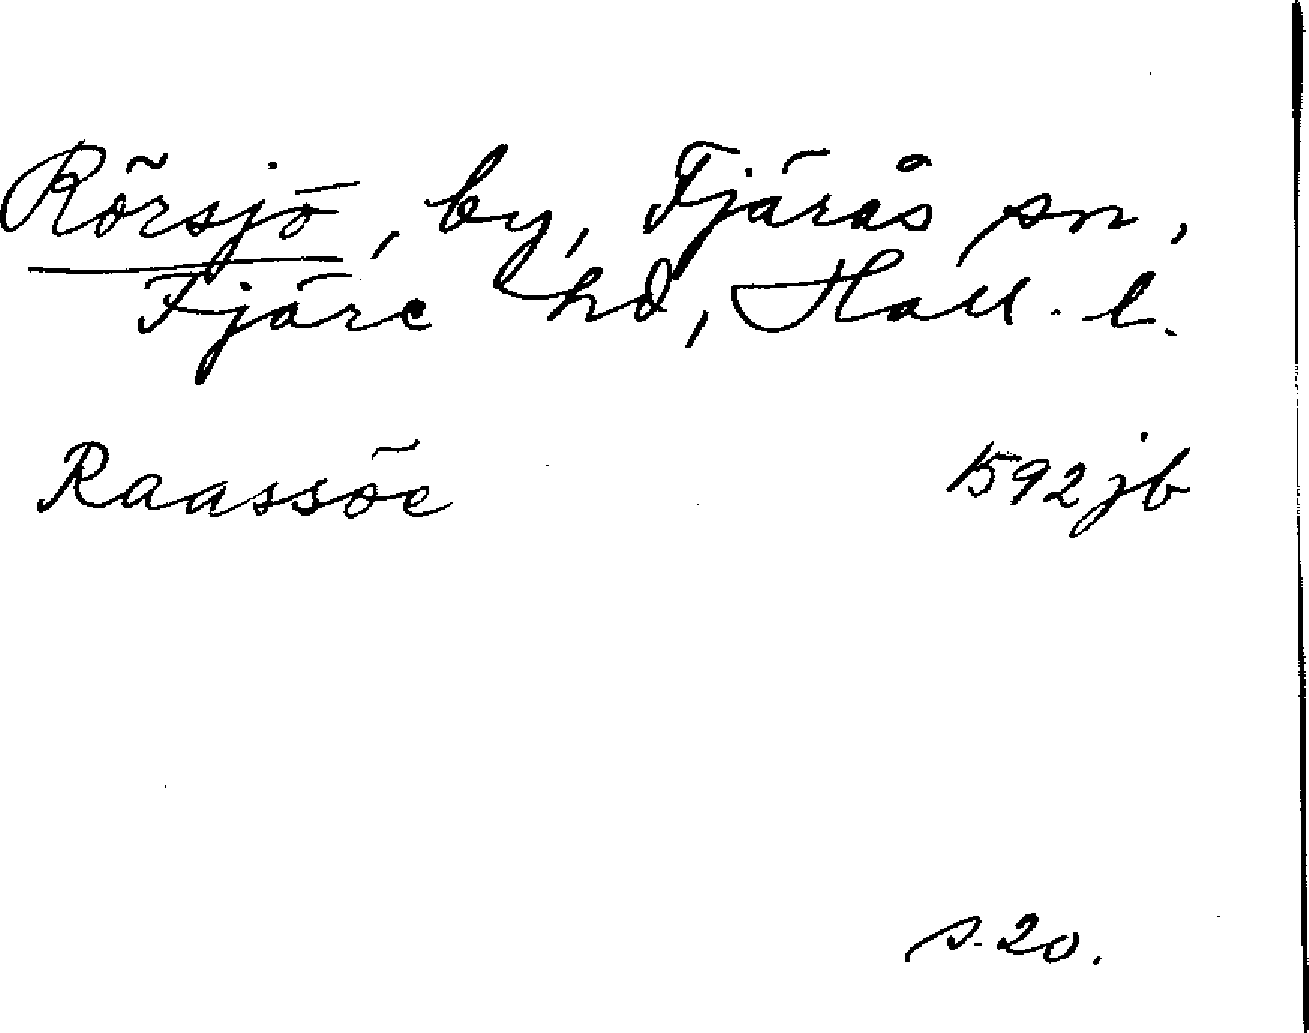 Rörsjö, by, Fjärås sn,
Fjäre hd, Hall. l.
Raassöe 1592 jb
s. 20.